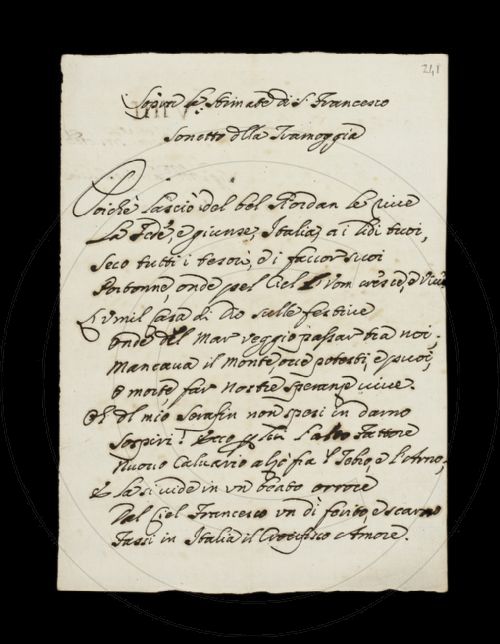 241
Sopra le Stimate di S. Francesco
Sonetto della Tramoggia
Poichè lasciò del bel Giordan le rive
La Fede, e giunse, Italia, a i lidi tuoi,
Seco tutti i tesori, e i favor suoi
Portonne, onde pel Ciel l'Uom cresce, e vive
Umil casa di Dio sulle festive
onde del Mar veggio passar tra noi;
Mancava il Monte, ove potesti, e puoi,
O morte, far nostre speranze vive.
O del mio Serafin non sparsi in darno
Sospiri! Ecco per lui l'alto Fattore
Nuovo Calvario alzò fra 'l Tebro, e l'Arno,
E la si vide in un beato orrore
Dal Ciel Francesco un dì ferito, e scarno
Farsi in Italia il Crocifisso Amore.